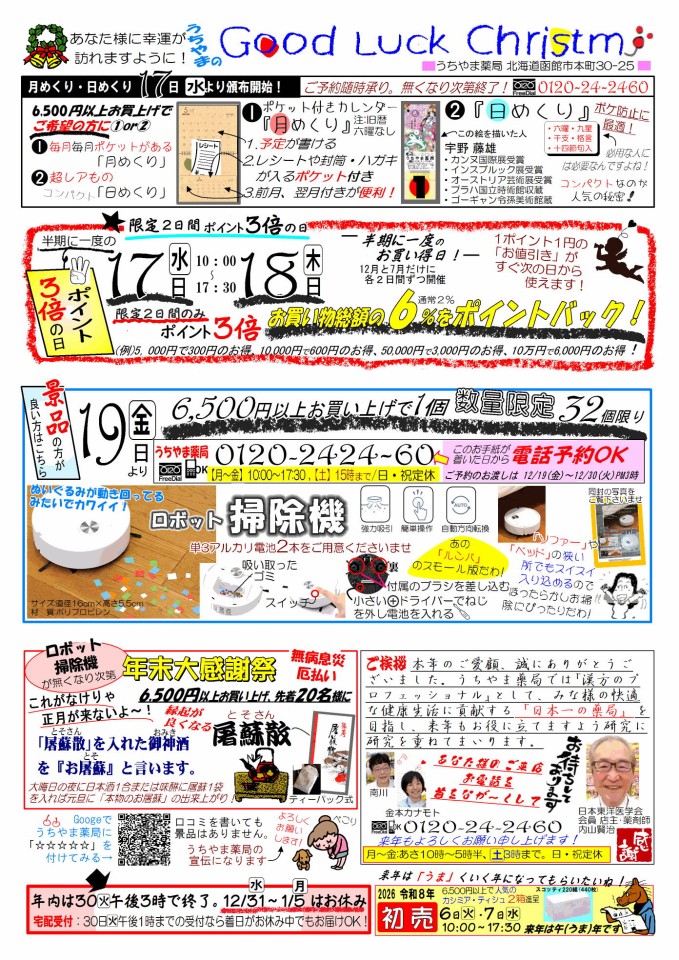 あなた様に幸運が
訪れますように！
うちやまの
Good Luck Christm
■うちやま薬局 北海道函館市本町30-25■
月めくり・日めくり 17日㊌より頒布開始！
ご予約随時承り。無くなり次第終了！ FreeDial 0120-24-2460
6,500円以上お買上げで
ご希望の方に①or②
❶毎月毎月ポケットがある
「月めくり」
❷超レアもの
コンパクト「日めくり」
レシート
❶ポケット付きカレンダー
『月めくり』注:旧暦
六曜なし
1.予定が書ける
2.レシートや封筒・ハガキ
が入るポケット付き
3.前月、翌月付きが便利！
❷『日めくり』
ボケ防止に
最適！
〜この絵を描いた人
宇野 藤雄
・カンヌ国際展受賞
・インスブルック展受賞
・オーストリア芸術展受賞
・プラハ国立時術館収蔵
・ゴーギャン令孫美術館蔵
・六曜・九星
・干支・格言
・十四節句入
必用な人に
は必要なんですよね！
コンパクトなのが
人気の秘密！
限定2日間 ポイント3倍の日
半期に一度の
ポイント
3倍の日
17日㊌
10：00
〜
17：30
18日木
限定2日間のみ
ポイント3倍
―半期に一度の
お買い得日！―
12月と7月だけに
各2日間ずつ開催
1ポイント1円の
「お値引き」が
すぐ次の日から
使えます！
通常2％
お買い物総額の6％をポイントバック！
(例)5,000円で300円のお得、10,000円で600円のお得、50,000円で3,000円のお得、10万円で6,000円のお得！
景品の方が
良い方はこちら
19日金より
6,500円以上お買い上げで1個 数量限定 32個限り
うちやま薬局
FreeDial OK
0120-2424-60
【月〜金】10:00〜17:30、【土】15時まで/日・祝定休
このお手紙が
着いた日から 電話予約OK
ご予約のお渡しは 12/19(金)〜12/30(火)PM3時
ぬいぐるみが動き回ってる
みたいでカワイイ！
サイズ:直径16cm×高さ5.5cm
材 質:ポリプロピレン
ロボット 掃除機
強力吸引
簡単操作
AUTO
自動方向転換
単3アルカリ電池2本をご用意くださいませ
吸い取った
ゴミ
スイッチ
あの
「ルンバ」
のスモール版だわ！
裏
付属のブラシを差し込む
小さい⊕ドライバーでねじ
を外し電池を入れる
同封の写真を
ご覧下さいませ
「ソファー」や
「ベッド」の狭い
所でもスイスイ
入り込めるので
ほったらかしお掃
除にぴったりだわ！
ロボット
掃除機
が無くなり次第
年末大感謝祭
無病息災
厄払い
これがなけりゃ
正月が来ないよ〜！
6,500円以上お買い上げ、先着20名様に
縁起が
良くなる
とそさん
屠蘇散
とそさん おみき
「屠蘇散」を入れた御神酒
とそ
を『お屠蘇』と言います。
大晦日の夜に日本酒1合または味醂に屠蘇1袋
を入れば元旦に「本物のお屠蘇」の出来上がり！
屠蘇散
ティーバック式
Googeで
うちやま薬局に
「☆☆☆☆☆」を
付けてみる→
口コミを書いても
景品はありません。
うちやま薬局の
宣伝になります
よろしく
お願い
します！
ぺこり
ご挨拶 本年のご愛顧、誠にありがとうご
ざいました。うちやま薬局では「漢方のプ
ロフェッショナル」として、みな様の快適
な健康生活に貢献する「日本一の薬局」を
目指し、来年もお役に立てますよう研究に
研究を重ねてまいります。
南川
金本カナモト
あなた様のご来店
お電話を
首をなが〜くして
お待ちして
おります
日本東洋医学会
会員 店主・薬剤師
内山賢治
感謝
FreeDial OK
0120-24-2460
来年もよろしくお願い申し上げます！
月〜金:あさ10時〜5時半、土3時まで。日・祝定休
年内は30㊋午後3時で終了。12/31㊌〜1/5㊊はお休み
宅配受付：30日㊋午後1時までの受付なら着日がお休み中でもお届けOK！
来年は「うま」くいく年になってもらいたいね！
2026 令和8年
初売
6,500円以上で人気の
カシミア・ティシュ 2箱進呈
スコッティ220組(440枚)
6日㊋・7日㊌
10:00〜17:30
来年は午(うま)年です